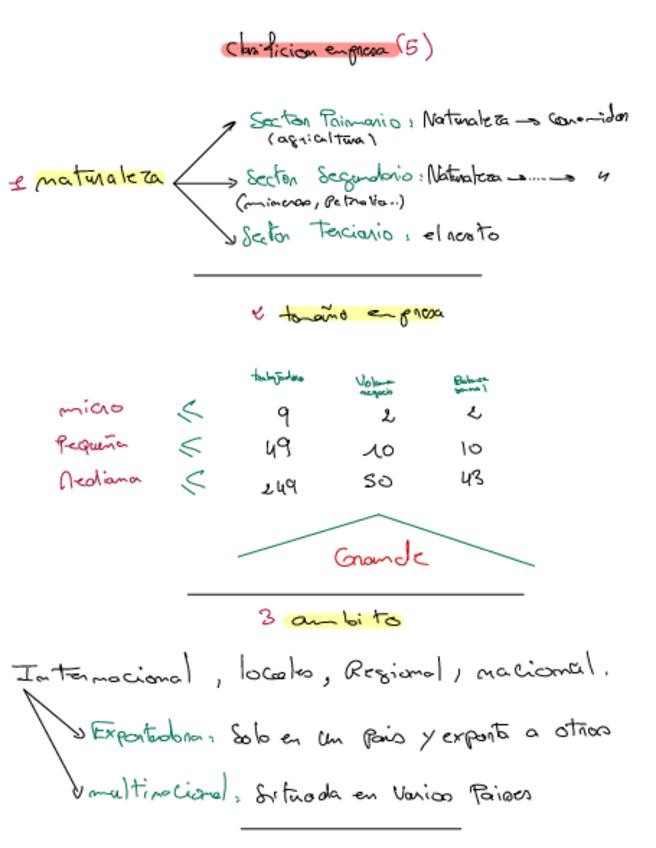 Clasificion empresa (5)
1 naturaleza
Sector Primario: Naturaleza → consumidor
(agricultura)
Sector Segundario: Naturaleza →......→ "
(mineras, Petrolia..)
Sector Terciario: el resto
2 tamaño empresa
trabajadores Volumen negocio Balance anual
micro ≤ 9 2 2
Pequeña ≤ 49 10 10
Mediana ≤ 249 50 43
Grande
3 ambito
Internacional, locales, Regional, nacional.
Exportadora: Solo en un país y exporta a otros
multinacional: Situada en Varios Paises